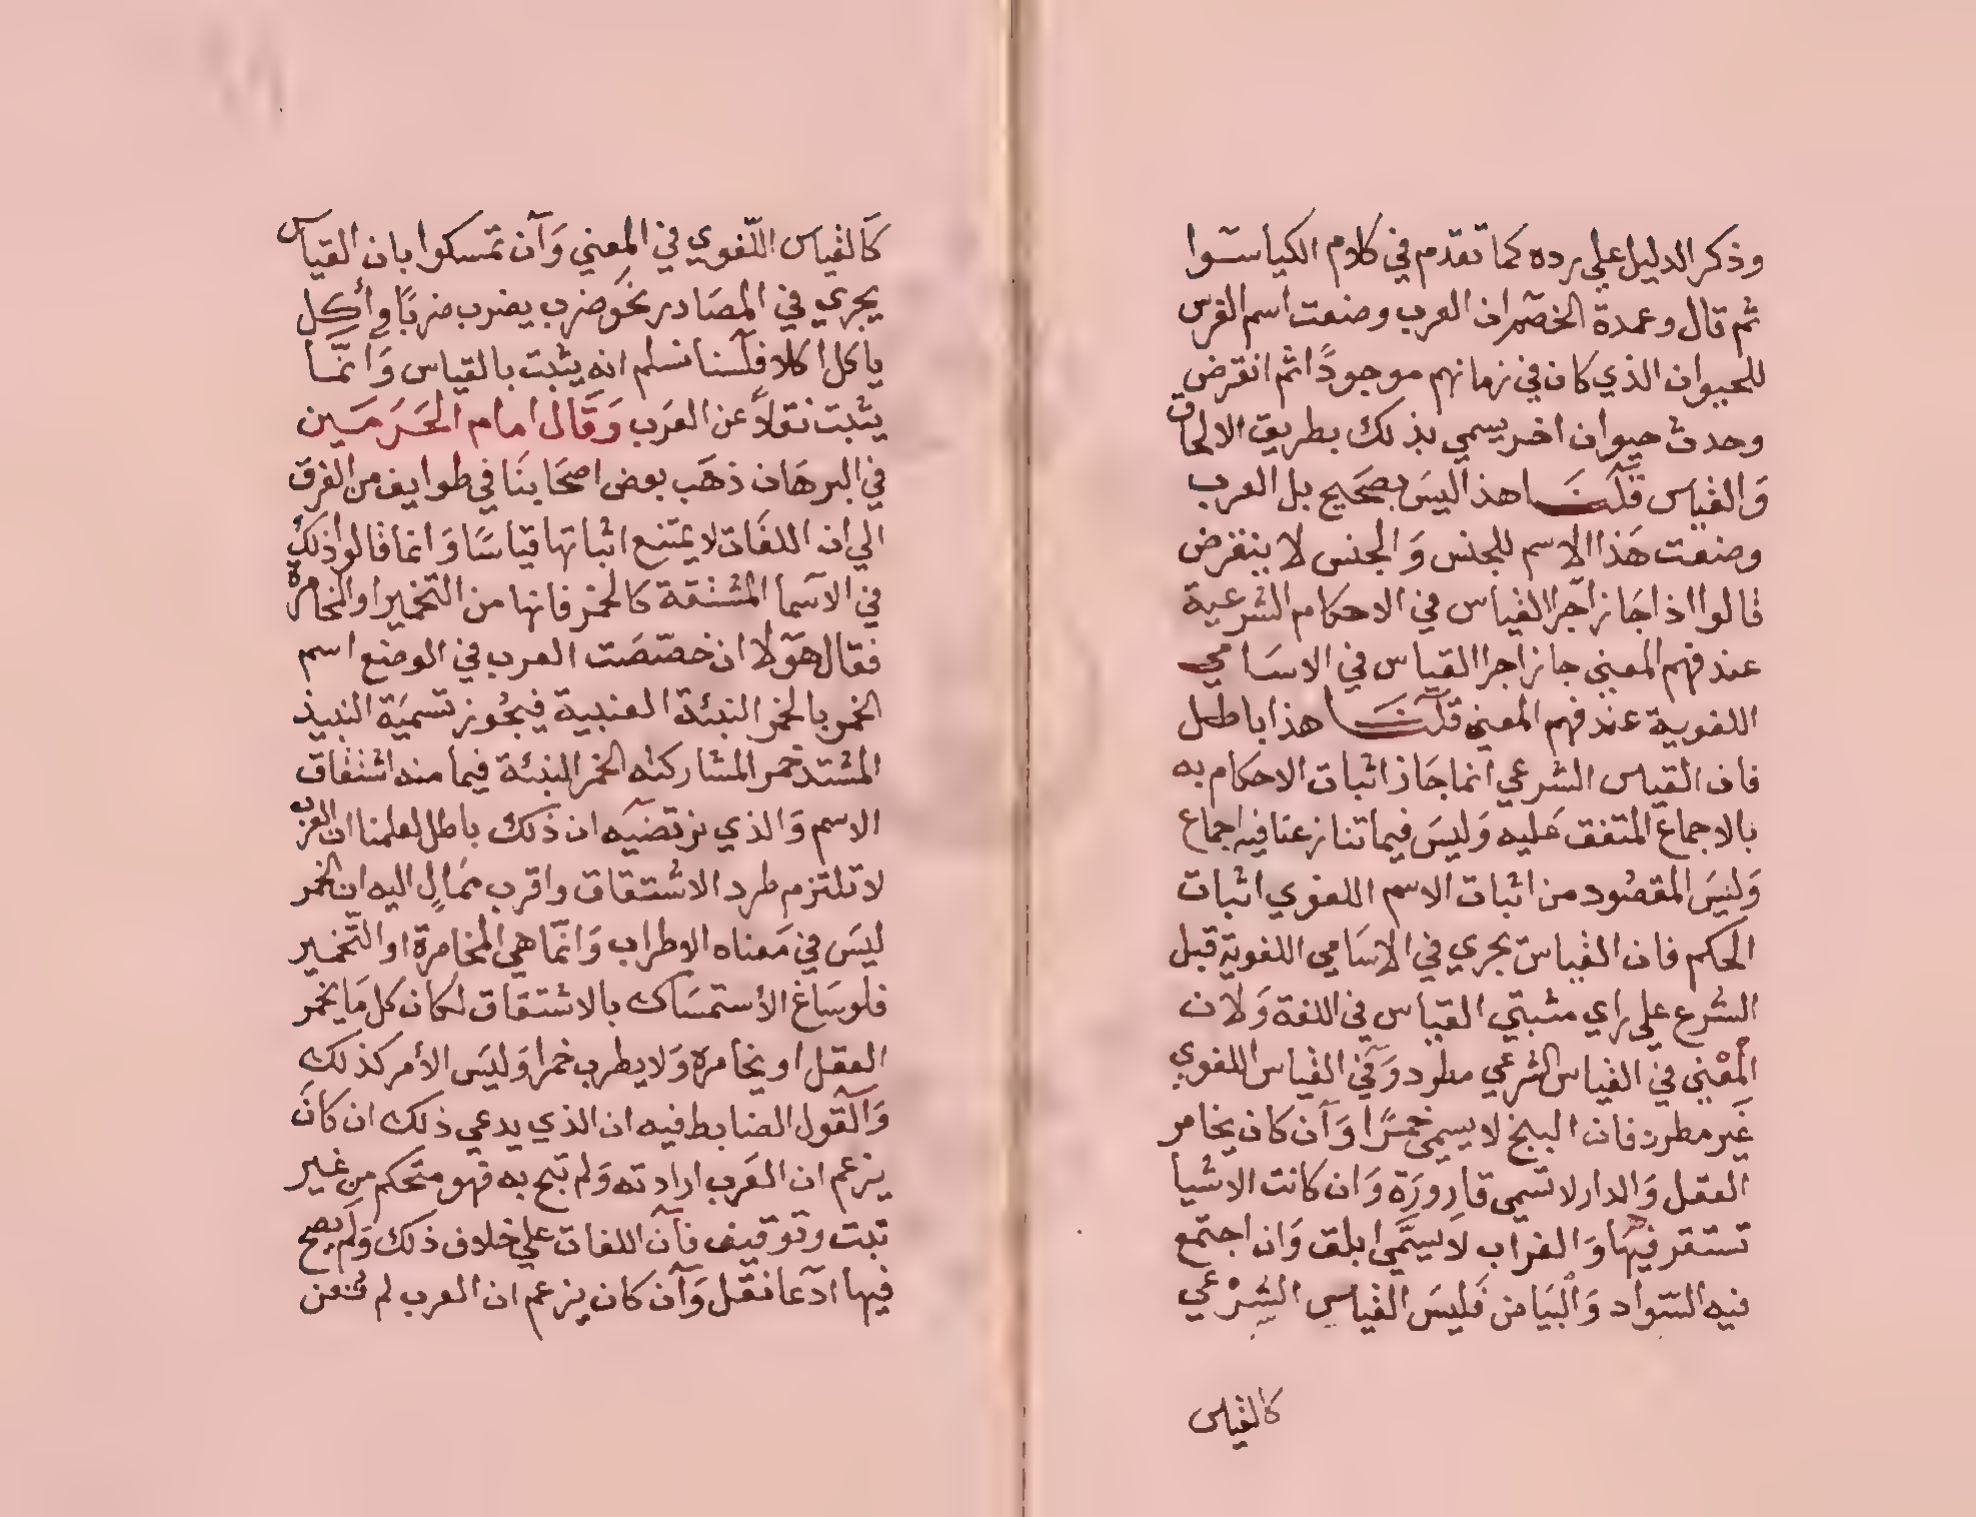 وذكر الدليل علي رده كما تقدم في كلام الكياسوا
ثم قال وعمدة الخصم ان العرب وضعت اسم الفرس
للحيوان الذي كان في زمانهم موجودًا ثم انقرض
وحدث حيوان اخر يسمي بذلك بطريق الالحاق
وَالقياس قلنَا هذا ليسَ بصَحَيح بل العرب
وضعت هَذا الاسم للجنس وَالجنس لا ينقرض
قالوا اذا جَاز اجرا القياس في الاحكام الشرعية
عند فهم المعني جاز اجرا القياس في الاسَامي
اللغوية عند فهم المعني قلنَا هذا باطل
فان القياس الشرعي انما جَاز اثبات الاحكام به
بالاجماع المتفق عَليه وَليسَ فيما تنازعنا فيه اجماع
وَليسَ المقصُود من اثبات الاسم اللغوي اثبات
الحكم فان القياس يجري في الاسَامي اللغوية قبل
الشرع علي راي مثبتي القياس في اللغة وَلان
المعْني في القياس الشرعي مطرد وَفي القياس اللغوي
غَير مطرد فان البنج لا يسمي خمرًا وَان كان يخامر
العقل وَالدار لا تسمي قارورَة وَان كانت الاشيا
تستقر فيهَا وَالغراب لا يسَمَّي ابلق وَان اجتمع
فيه السَّواد وَالبَيَاض فَليسَ القياس الشرْعي
كالقياس
كَالقياس اللّغوي في المعني وَان تمسكوا بان القياس
يجري في المصَادر نحَو ضرب يضرب ضربًا وأكل
ياكل اكلا فلسنا نسلم انه يثبت بالقياس وَانمَّا
يثبت نقلاً عن العَرب وَقَال امام الحَرَمَين
في البرهَان ذهَب بعض اصحَابنَا في طوايف من الفرق
الي ان اللغَات لا يمتنع اثباتها قياسًا وَانما قالوا ذلك
في الاسما المشتقة كالخمر فانها من التخمير او المخامرة
فقال هَولا ان خصّصَت العرب في الوضع اسم
الخمر بالخمر النيئة العنبية فيجُوز تسميَة النبيذ
المشتد خمر المشاركته الخمر النيئة فيما منه اشتقاق
الاسم وَالذي نرتضيَه ان ذلك باطل لعلمنا ان العرب
لا تلتزم طرد الاشتقاق واقرب مَثال اليه ان الخمر
ليسَ في مَعناه الاطراب وَانمّا هي المخامرة او التّخمير
فلو سَاغ الأستمسَاك بالاشتقاق لكان كل مَا يخمر
العقل او يخامرة وَلا يطرب خمرا وَليسَ الأمر كذلك
وَالقول الضابط فيه ان الذي يدعي ذلك ان كانَ
يزعم ان العَرب ارادته وَلم تبح به فهو متحكم من غير
ثبت وتوقيف فان اللغات علي خلاف ذلك وَلم يصح
فيها ادّعا نقل وَان كان يزعم ان العرب لم تعن